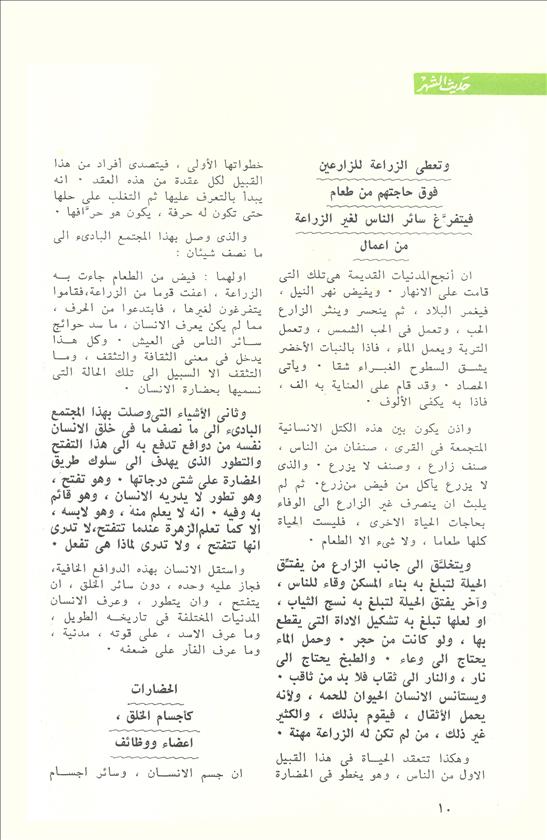 حديث الشهر
وتعطى الزراعة للزارعين
فوق حاجتهم من طعام
فيتفرَّغ سائر الناس لغير الزراعة
من اعمال
ان أنجح المدنيات القديمة هى تلك التى
قامت على الانهار ٠ ويفيض نهر النيل ،
فيغمر البلاد ، ثم ينحسر وينثر الزارع
الحب ، وتعمل فى الحب الشمس ، وتعمل
التربة ويعمل الماء ، فاذا بالنبات الأخضر
يشـق السطوح الغبـراء شقا ٠ ويأتى
الحصاد ٠ وقد قام على العناية به الف ،
فاذا به يكفى الألوف ٠
واذن يكون بين هذه الكتل الانسانية
المتجمعة فى القرى ، صنفان من الناس ،
صنف زارع ، وصنف لا يزرع ٠ والذى
لا يزرع يأكل من فيض من زرع ٠ ثم لم
يلبث ان ينصرف غير الزارع الى الوفاء
بحاجات الحياة الاخرى ، فليست الحياة
كلها طعاما ، ولا شىء الا الطعام ٠
ويتخلَّق الى جانب الزارع من يفتـِّق
الحيلة لتبلغ به بناء المسكن وقاء للناس ،
وآخر يفتق الحيلة لتبلغ به نسج الثياب ،
او لعلها تبلغ به تشكيل الاداة التى يقطع
بها ، ولو كانت من حجر ٠ وحمل الماء
يحتاج الى وعاء ٠ والطبخ يحتاج الى
نار ، والنار الى ثقاب فلا بد من ثاقب ٠
ويستانس الانسان الحيوان للحمه ، ولأنه
يحمل الأثقال ، فيقوم بذلك ، والكثير
غير ذلك ، من لم تكن له الزراعة مهنة ٠
وهكذا تتعقد الحيـاة فى هذا القبيل
الاول من الناس ، وهو يخطو فى الحضارة
خطواتها الأولى ، فيتصدى أفراد من هذا
القبيل لكل عقدة من هذه العقد ٠ انه
يبدأ بالتعرف عليها ثم التغلب على حلها
حتى تكون له حرفة ، يكون هو حرَّافها ٠
والذى وصل بهذا المجتمع البادىء الى
ما نصف شيئان :
اولهما : فيض من الطعام جاءت بـه
الزراعة ، اعفت قوما من الزراعة، فقاموا
يتفرغون لغيرها ، فابتدعوا من الحرف ،
مما لم يكن يعرف الانسان ، ما سد حوائج
سـائر الناس فى العيش ٠ وكل هـذا
يدخل فى معنى الثقافة والتثقف ، ومـا
التثقف الا السبيل الى تلك الحالة التى
نسميها بحضارة الانسان ٠
وثانى الأشياء التى وصلت بهذا المجتمع
البادىء الى ما نصف ما فى خلق الانسان
نفسه من دوافع تدفع به الى هذا التفتح
والتطور الذى يهدف الى سلوك طريق
الحضارة على شتى درجاتها ٠ وهو تفتح ،
وهو تطور لا يدريه الانسان ، وهو قائم
به وفيه ٠ انه لا يعلم منه ، وهو لابسه ،
الا كما تعلم الزهرة عندما تتفتح، لا تدرى
انها تتفتح ، ولا تدرى لماذا هى تفعل ٠
واستقل الانسان بهذه الدوافع الخافية،
فجاز عليه وحده ، دون سائر الخلق ، ان
يتفتح ، وان يتطور ، وعرف الانسان
المدنيات المختلفة فى تاريخـه الطويل ،
وما عرف الاسد ، على قوته ، مدنية ،
وما عرف الفأر على ضعفه ٠
الحضارات
كاجسام الخلق ،
اعضاء ووظائف
ان جسم الانسـان ، وسائر اجسـام
١٠